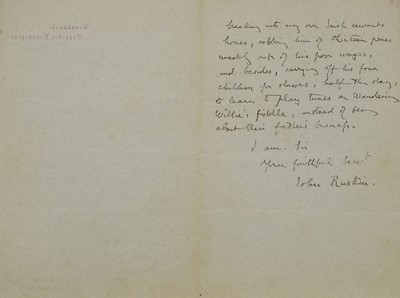 Brantwood,
Coniston, Lancashire.
breaking into my own Irish servants
house, robbing him of thirteen pence
weekly out of his poor wages,
and besides, carrying off his four
children for slaves, half the day,
to learn to play tunes on Wandering
Willie's fiddle, instead of being
about their father's business.
I am. Sir
Your faithful Servt
John Ruskin.